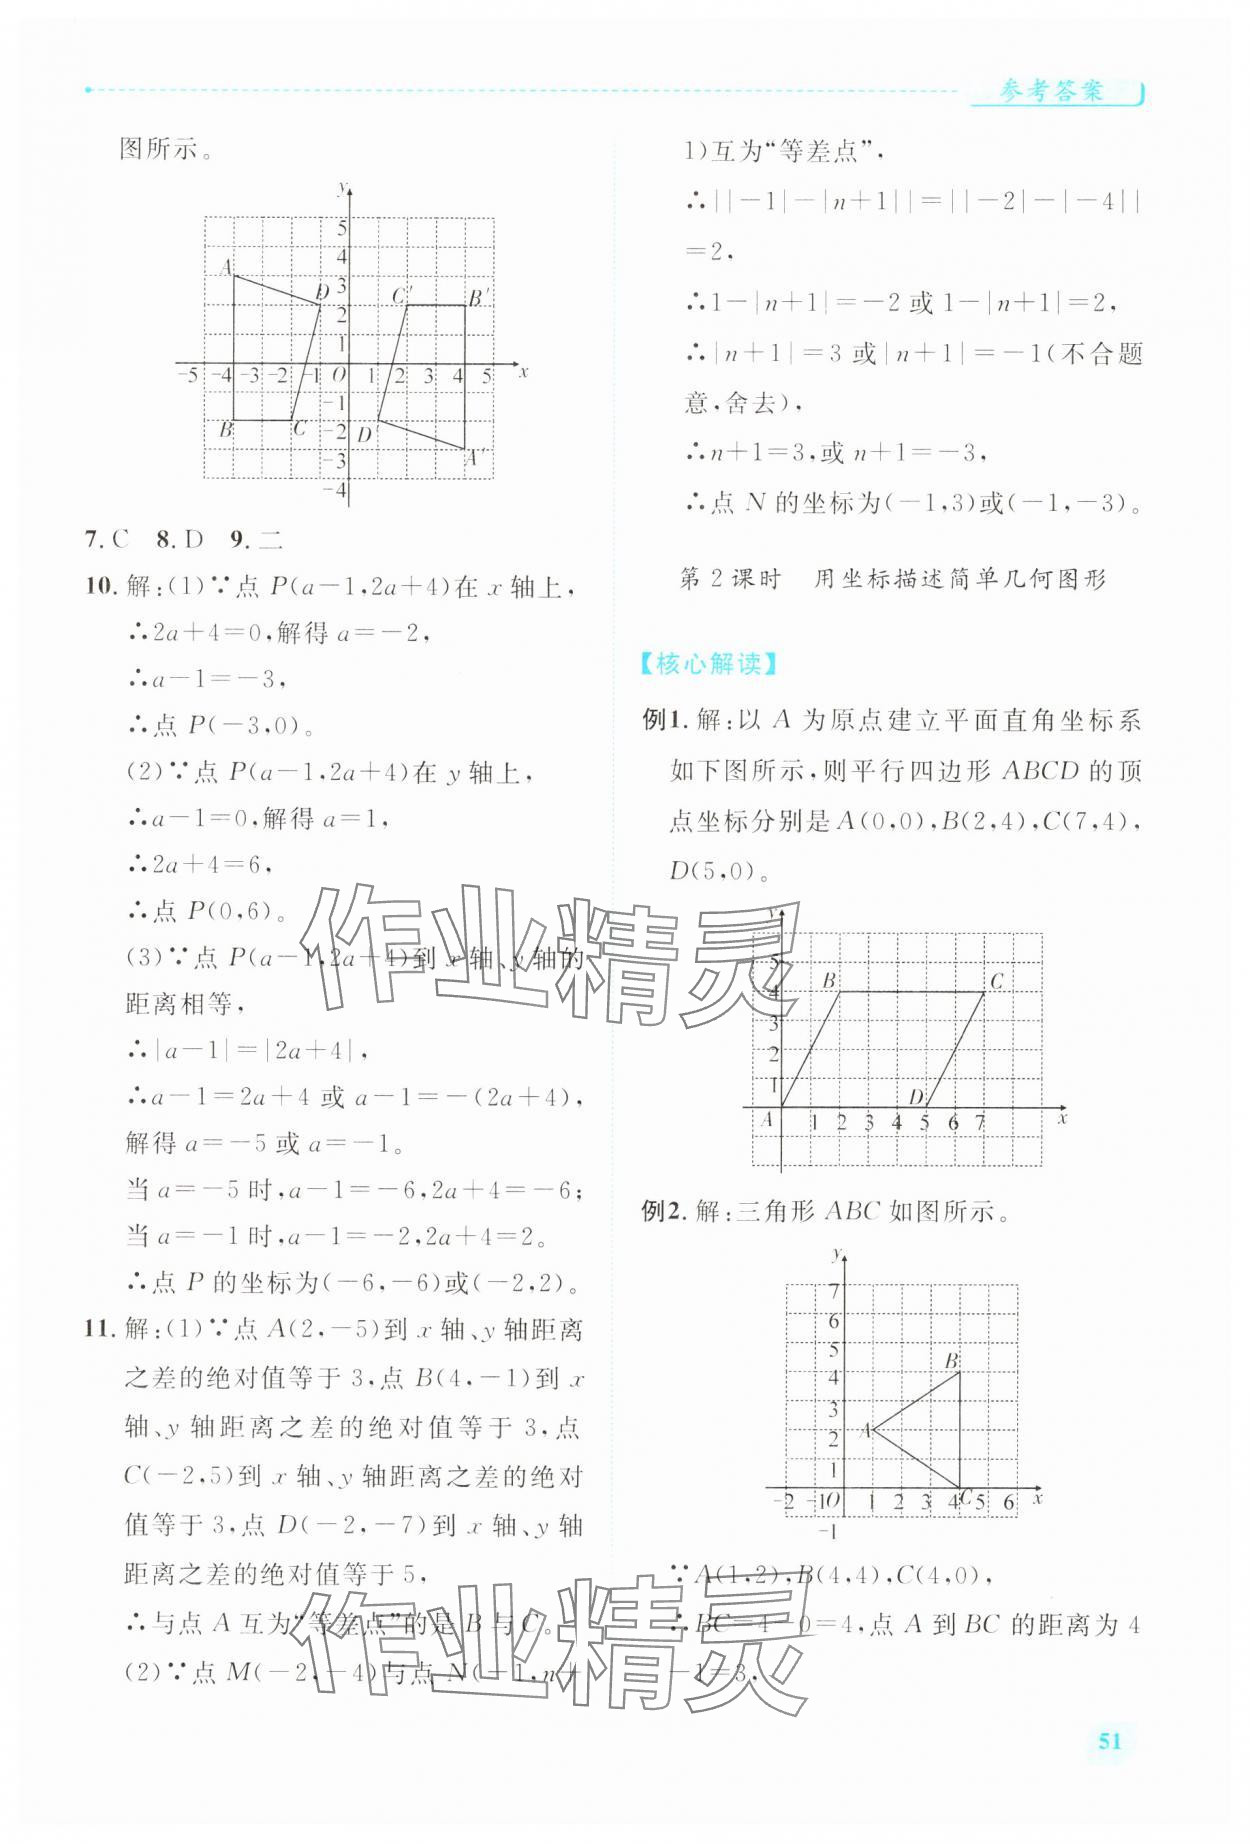 参考答案
图所示。
y
5
4
A
3
D
C′
B′
2
1
-5 -4 -3 -2 -1 O 1 2 3 4 5 x
-1
B
C
-2
D′
-3
A′
-4
7. C 8. D 9. 二
10. 解:(1)∵点 P(a-1,2a+4)在 x 轴上,
∴2a+4=0,解得 a=-2,
∴a-1=-3,
∴点 P(-3,0)。
(2)∵点 P(a-1,2a+4)在 y 轴上,
∴a-1=0,解得 a=1,
∴2a+4=6,
∴点 P(0,6)。
(3)∵点 P(a-1,2a+4)到 x 轴、y 轴的
距离相等,
∴|a-1|=|2a+4|,
∴a-1=2a+4 或 a-1=-(2a+4),
解得 a=-5 或 a=-1。
当 a=-5 时,a-1=-6,2a+4=-6;
当 a=-1 时,a-1=-2,2a+4=2。
∴点 P 的坐标为(-6,-6)或(-2,2)。
11. 解:(1)∵点 A(2,-5)到 x 轴、y 轴距离
之差的绝对值等于 3,点 B(4,-1)到 x
轴、y 轴距离之差的绝对值等于 3,点
C(-2,5)到 x 轴、y 轴距离之差的绝对
值等于 3,点 D(-2,-7)到 x 轴、y 轴
距离之差的绝对值等于 5,
∴与点 A 互为“等差点”的是 B 与 C。
(2)∵点 M(-2,-4)与点 N(-1,n+
1)互为“等差点”,
∴||-1|-|n+1||=||-2|-|-4||
=2,
∴1-|n+1|=-2 或 1-|n+1|=2,
∴|n+1|=3 或|n+1|=-1(不合题
意,舍去),
∴n+1=3,或 n+1=-3,
∴点 N 的坐标为(-1,3)或(-1,-3)。
第 2 课时 用坐标描述简单几何图形
【核心解读】
例1. 解:以 A 为原点建立平面直角坐标系
如下图所示,则平行四边形 ABCD 的顶
点坐标分别是 A(0,0),B(2,4),C(7,4),
D(5,0)。
y
5
B
C
4
3
2
1
D
A 1 2 3 4 5 6 7 x
例2. 解:三角形 ABC 如图所示。
y
7
6
5
B
4
3
A
2
1
-2 -1 O 1 2 3 4 C 5 6 x
-1
∵A(1,2),B(4,4),C(4,0),
∴BC=4-0=4,点 A 到 BC 的距离为 4
-1=3,
51
作业精灵
作业精灵